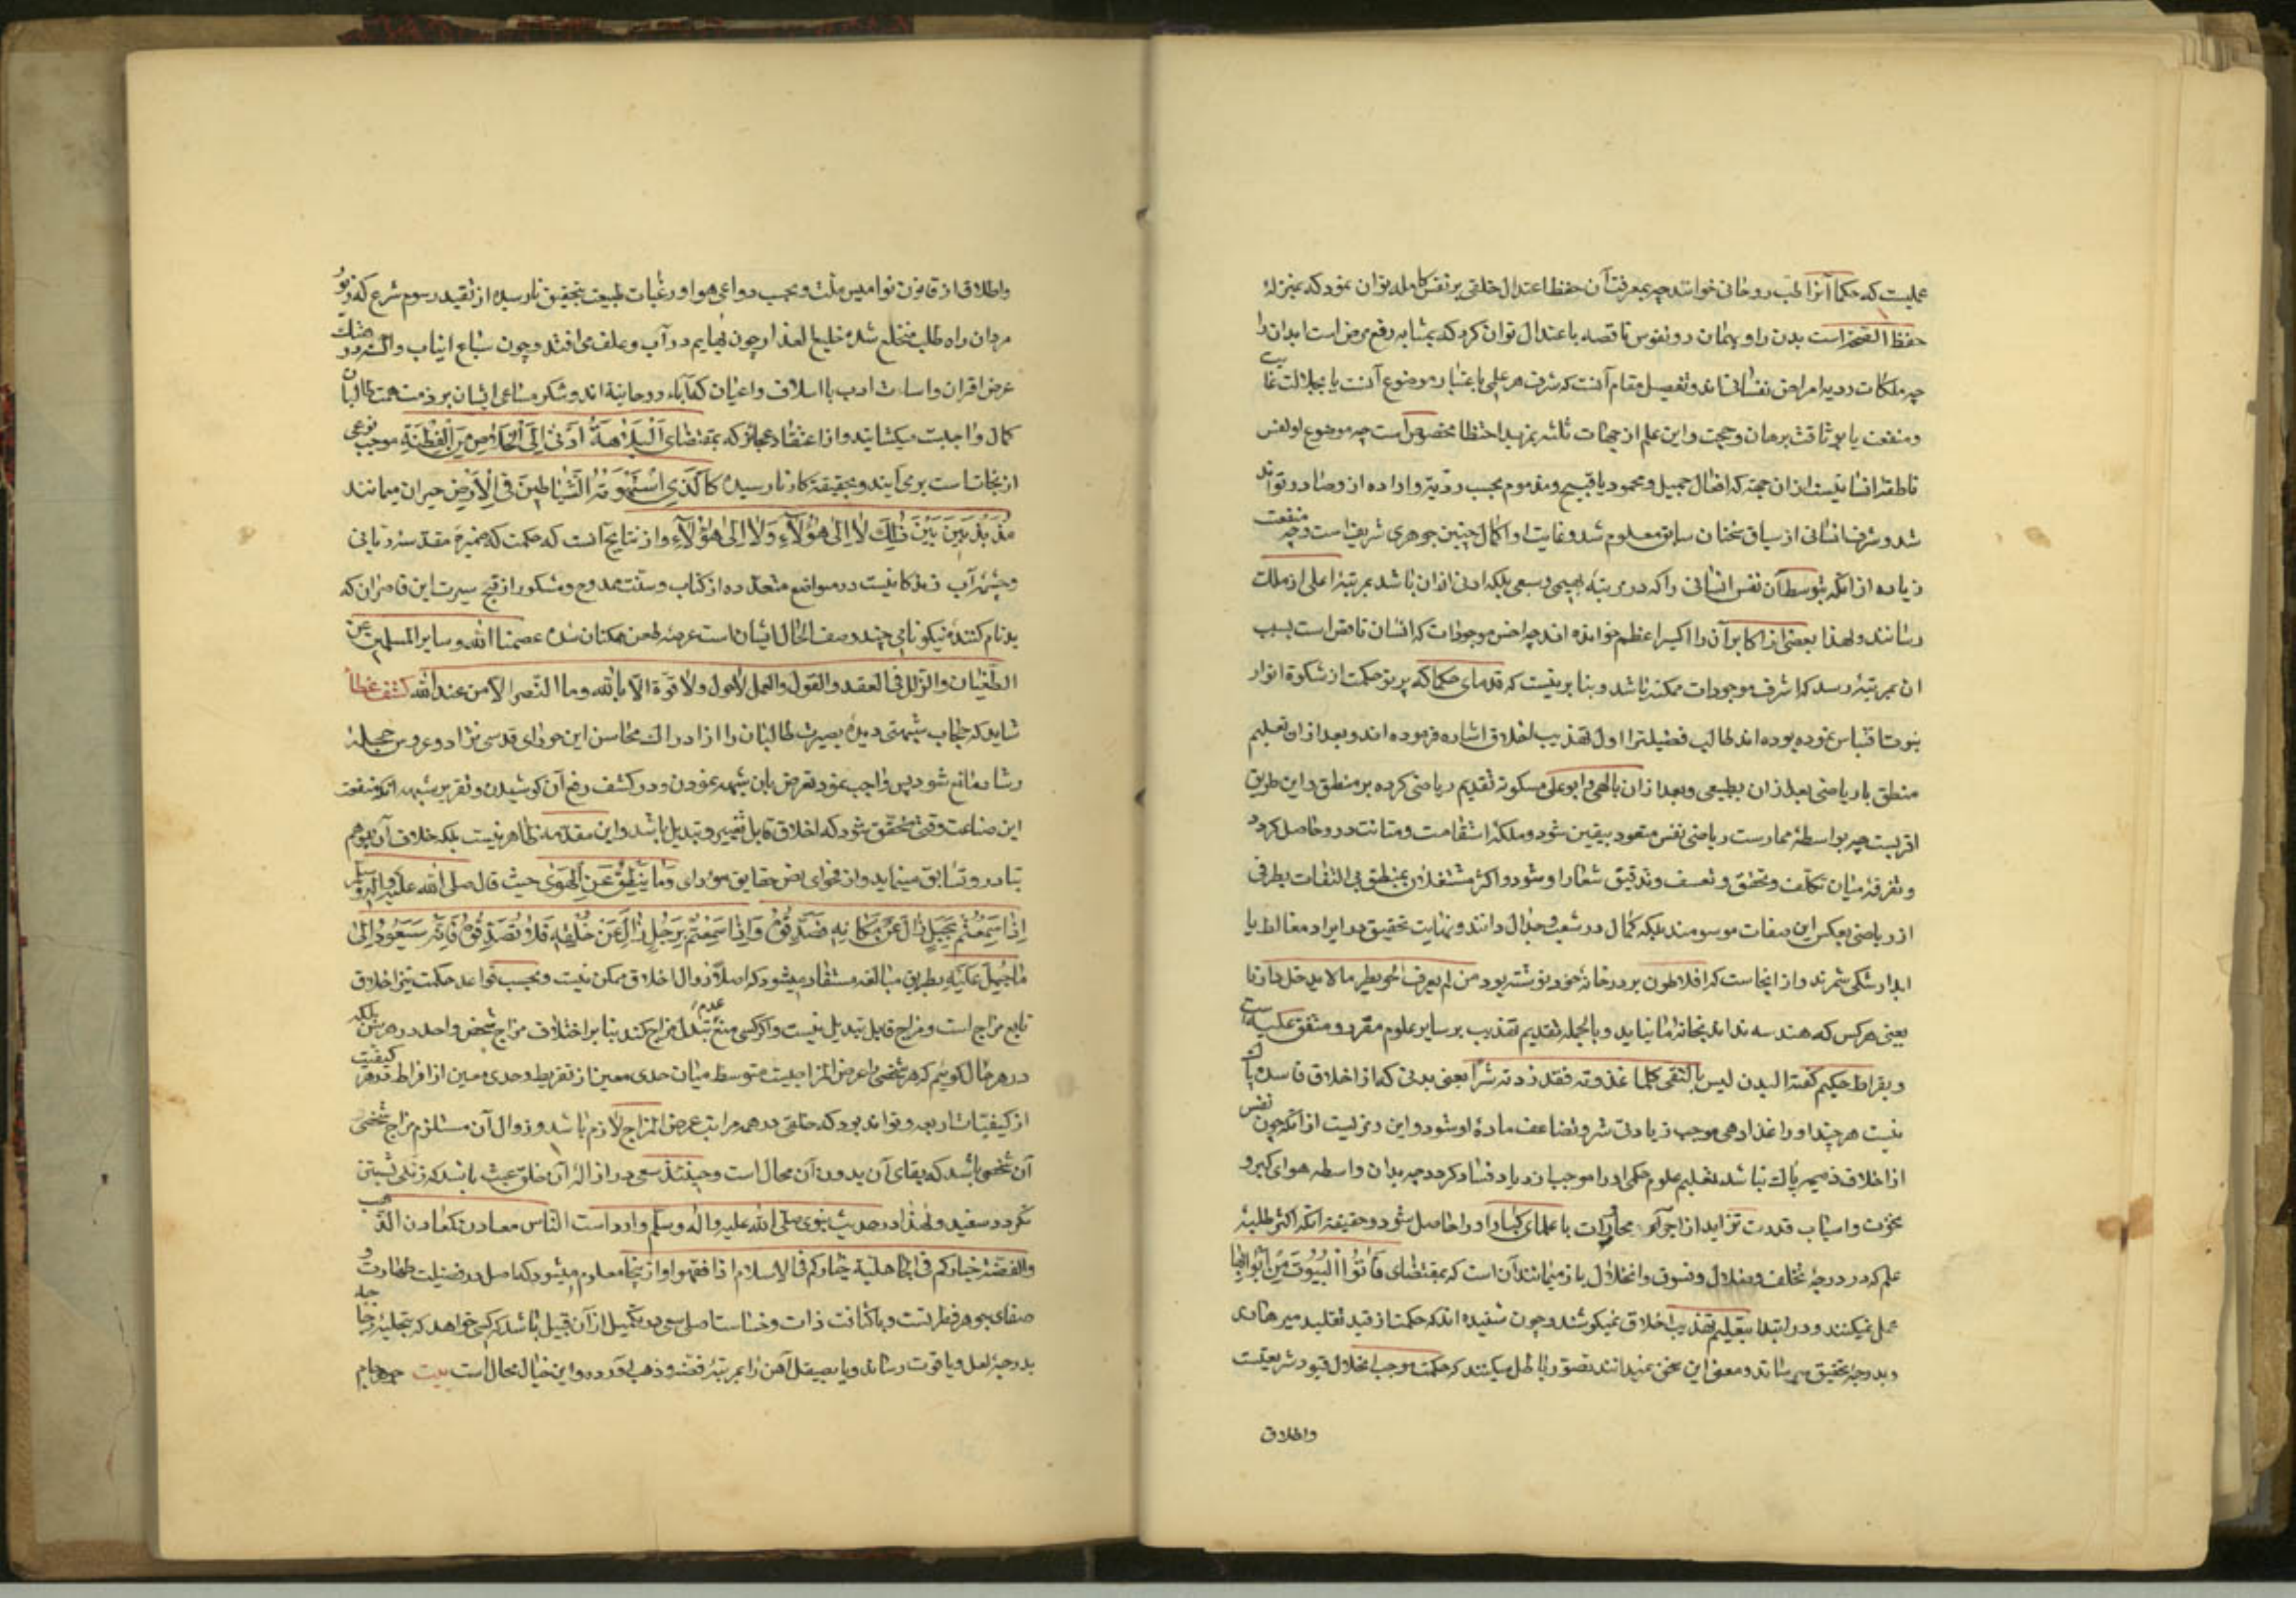 عملیست که حکما آنرا طب روحانی خوانند چه بمعرفت آن حفظ اعتدال خلقی بر نفس کامله توان نمود که بمنزلهٔ
حفظ الصحه است بدن را و بهمان رد نفوس ناقصه باعتدال توان کرد که بمشابه رفع مرض است ابدان را
چه ملکات ردیه امراض نفسانی‌اند و تفصیل مقام آنست که شرف هر علمی باعتبار موضوع آنست یا بجلالت غایت
و منفعت یا بوثاقت برهان و حجت و این علم از جهات ثلثه بمزید احتظا مخصوص است چه موضوع او نفس
ناطقه انسانیست از ان جهة که افعال جمیل و محمود یا قبیح و مذموم بحسب رویت و اراده از و صادر تواند
شد و شرف انسانی از سیاق سخنان سابق معلوم شد و غایت او اکمال چنین جوهری شریفست و چه منفعت
زیاده از آنکه بتوسط آن نفس انسانی را که در مرتبهٔ بهیمی و سبعی بلکه ادنی از ان باشد بمرتبهٔ اعلی از ملک
رسانند و لهذا بعضی از اکابر آن را اکسیر اعظم خوانده اند چه اخس موجودات که انسان ناقص است بسبب
ان بمرتبهٔ رسد که اشرف موجودات ممکنه باشد و بنا برینست که قدمای حکما که پرتو حکمت از مشکوة انوار
نبوت اقتباس نموده بوده اند طالب فضیلت را اول تهذیب اخلاق اشاره فرموده اند و بعد از ان تعلیم
منطق یا ریاضی بعد از ان بطبیعی و بعد از ان بالهی و ابو علی مسکویه تقدیم ریاضی کرده بر منطق و این طریق
اقربست چه بواسطهٔ ممارست ریاضی نفس متعود بیقین شود و ملکهٔ استقامت و متانت در و حاصل کردد
و تفرقه میان تکلف و تحقق و تعسف و تدقیق شعار او شود و اکثر مشتغلان بمنطق بی التفات بطرفی
از ریاضی بعکس این صفات موسومند بلکه کمال در شعب و جدال دانند و نهایت تحقیق در ایراد مغالطه یا
ابداء شکی شمرند و از اینجاست که افلاطون بر در خانهٔ خود نوشته بود من لم یعرف الجومطریا لا یدخل دارنا
یعنی هر کس که هندسه نداند بخانهٔ ما نیاید و بالجمله تقدیم تهذیب بر سایر علوم مقرر و متفق علیه است
و بقراط حکیم گفته البدن لیس بالنقی کلما غذوته فقد زدته شرا یعنی بدنی که از اخلاق فاسده پاک
نیست هر چند او را غذا دهی موجب زیادتی شر و تضاعف مادهٔ او شود و این رمزیست از آنکه چون نفس
از اخلاق ذمیمه پاک نباشد تعلیم علوم حکمی او را موجب ازدیاد فساد کردد چه بدان واسطه هوای کبر و
نخوت و اسباب قدرت تزاید از اجوآء مجارات با علمای کبار او را حاصل شود و حقیقة آنکه اکثر طلبهٔ
علم که در درجهٔ تخلف و ضلال و فسوق و انحلال باز میمانند آن است که بمقتضای فَأْتُوا الْبُیُوتَ مِنْ أَبْوَابِهَا
عمل نمیکنند و در ابتدا بتعلیم تهذیب اخلاق نمیکوشند و چون شنیده اند که حکمت از قید تقلید میرهاند
و بدرجهٔ تحقیق میرساند و معنی این سخن نمیدانند تصور باطل میکنند که حکمت موجب انحلال قیود شریعتست
و اطلاق
و اطلاق از قانون نوامیس ملت و بحسب دواعی هوا و رغبات طبیعت بتحقیق نارسیده از تقید رسوم شرع که زیور
مردان راه طلب منخلع شده خلیع العذار چون بهایم در آب و علف می‌افتند و چون سباع انیاب و السنه در هتک
عرض اقران و اساءت ادب با اسلاف و اعیان که آباء روحانیة اند و شکر مساعی ایشان بر ذمت همت طالبان
کمال واجبست میکشایند و از اعتقاد عجائز که بمقتضای اَلْبَلَاهَةُ اَدْنیٰ اِلَی الْخَلَاصِ مِنَ الْفِطْنَةِ موجب نوعی
از نجاتست برمی‌آیند و بحقیقة کار نارسیده کَالَّذِی اسْتَهْوَتْهُ الشَّیَاطِینُ فِی الْأَرْضِ حیران میمانند
مُذَبْذَبِینَ بَیْنَ ذٰلِکَ لَا اِلیٰ هٰؤُلَآءِ وَلَا اِلیٰ هٰؤُلَآءِ و از نتایج آنست که حکمت که ثمرهٔ مقدسهٔ ربانی
و چشمهٔ آب زندکانیست در مواضع متعدده از کتاب و سنت ممدوح و مشکور از قبح سیرت این قاصران که
بدنام کنندهٔ نیکونامی چند وصف الحال ایشان است عرضهٔ طعن همکنان شده عصمنا الله و سایر المسلمین عن
الطغیان و الزلل فی العقد و القول و العمل لا حول ولا قوة الا بالله و ما النصر الا من عند الله کشف غطا
شاید که حجاب شبهتی دیدهٔ بصیرت طالبان را از ادراک محاسن این حورای قدسی نژاد و عروس حجلهٔ
رشاد مانع شود پس واجب نمود تعرض بان شبهه نمودن و در کشف رفع آن کوشیدن و تقریر شبهه آنکه منفعت
این صناعت وقتی محقق شود که اخلاق قابل تغییر و تبدیل باشد و این مقدمه ظاهر نیست بلکه خلاف آن بوهم
تبادر و تسابق مینماید و از فحوای نص حقایق مؤدای وَمَا یَنْطِقُ عَنِ الْهَوَیٰ حیث قال صلی الله علیه و آله و سلم
اِذَا سَمِعْتُمْ بِجَبَلٍ زَالَ عَنْ مَکَانِهِ فَصَدِّقُوهُ وَ اِذَا سَمِعْتُمْ بِرَجُلٍ زَالَ عَنْ خُلُقِهِ فَلَا تُصَدِّقُوهُ فَاِنَّهُ سَیَعُودُ اِلیٰ
مَا جُبِلَ عَلَیْهِ بطریق مبالغه مستفاد میشود که اصلا زوال اخلاق ممکن نیست و بحسب قواعد حکمت نیز اخلاق
تابع مزاج است و مزاج قابل تبدیل نیست و اکر کسی منع عدم تبدل مزاج کند بنا بر اختلاف مزاج شخص واحد در هر سن بلکه
در هر حال گوئیم که هر شخصی را عرض المزاجیست متوسط میان حدی معین از تفریط و حدی معین از افراط در هر کیفیت
از کیفیات اربعه و تواند بود که خلقی در همه مراتب عرض المزاج لازم باشد و زوال آن مستلزم مزاج شخصی
آن شخص باشد که بقای آن بدون آن محال است و حینئذ سعی در ازالهٔ آن خلق عبث باشد که زنگی بشستن
نکردد سفید و لهذا در حدیث نبوی صلی الله علیه و اله و سلم وارد است الناس معادن کمعادن الذهب
والفضة خیارکم فی الجاهلیة خیارکم فی الاسلام اذا فقهوا و از اینجا معلوم میشود که اصل در فضیلت طهارت و
صفای جوهر فطرتست و با کثافت ذات و خساست اصلی سعی در تکمیل از آن قبیل باشد که کسی خواهد که بتجلیه زجاجه
بدرجهٔ لعل و یاقوت رساند و یا بصیقل آهن را بمرتبهٔ فضه و ذهب آورد و این خیال محال است بیت